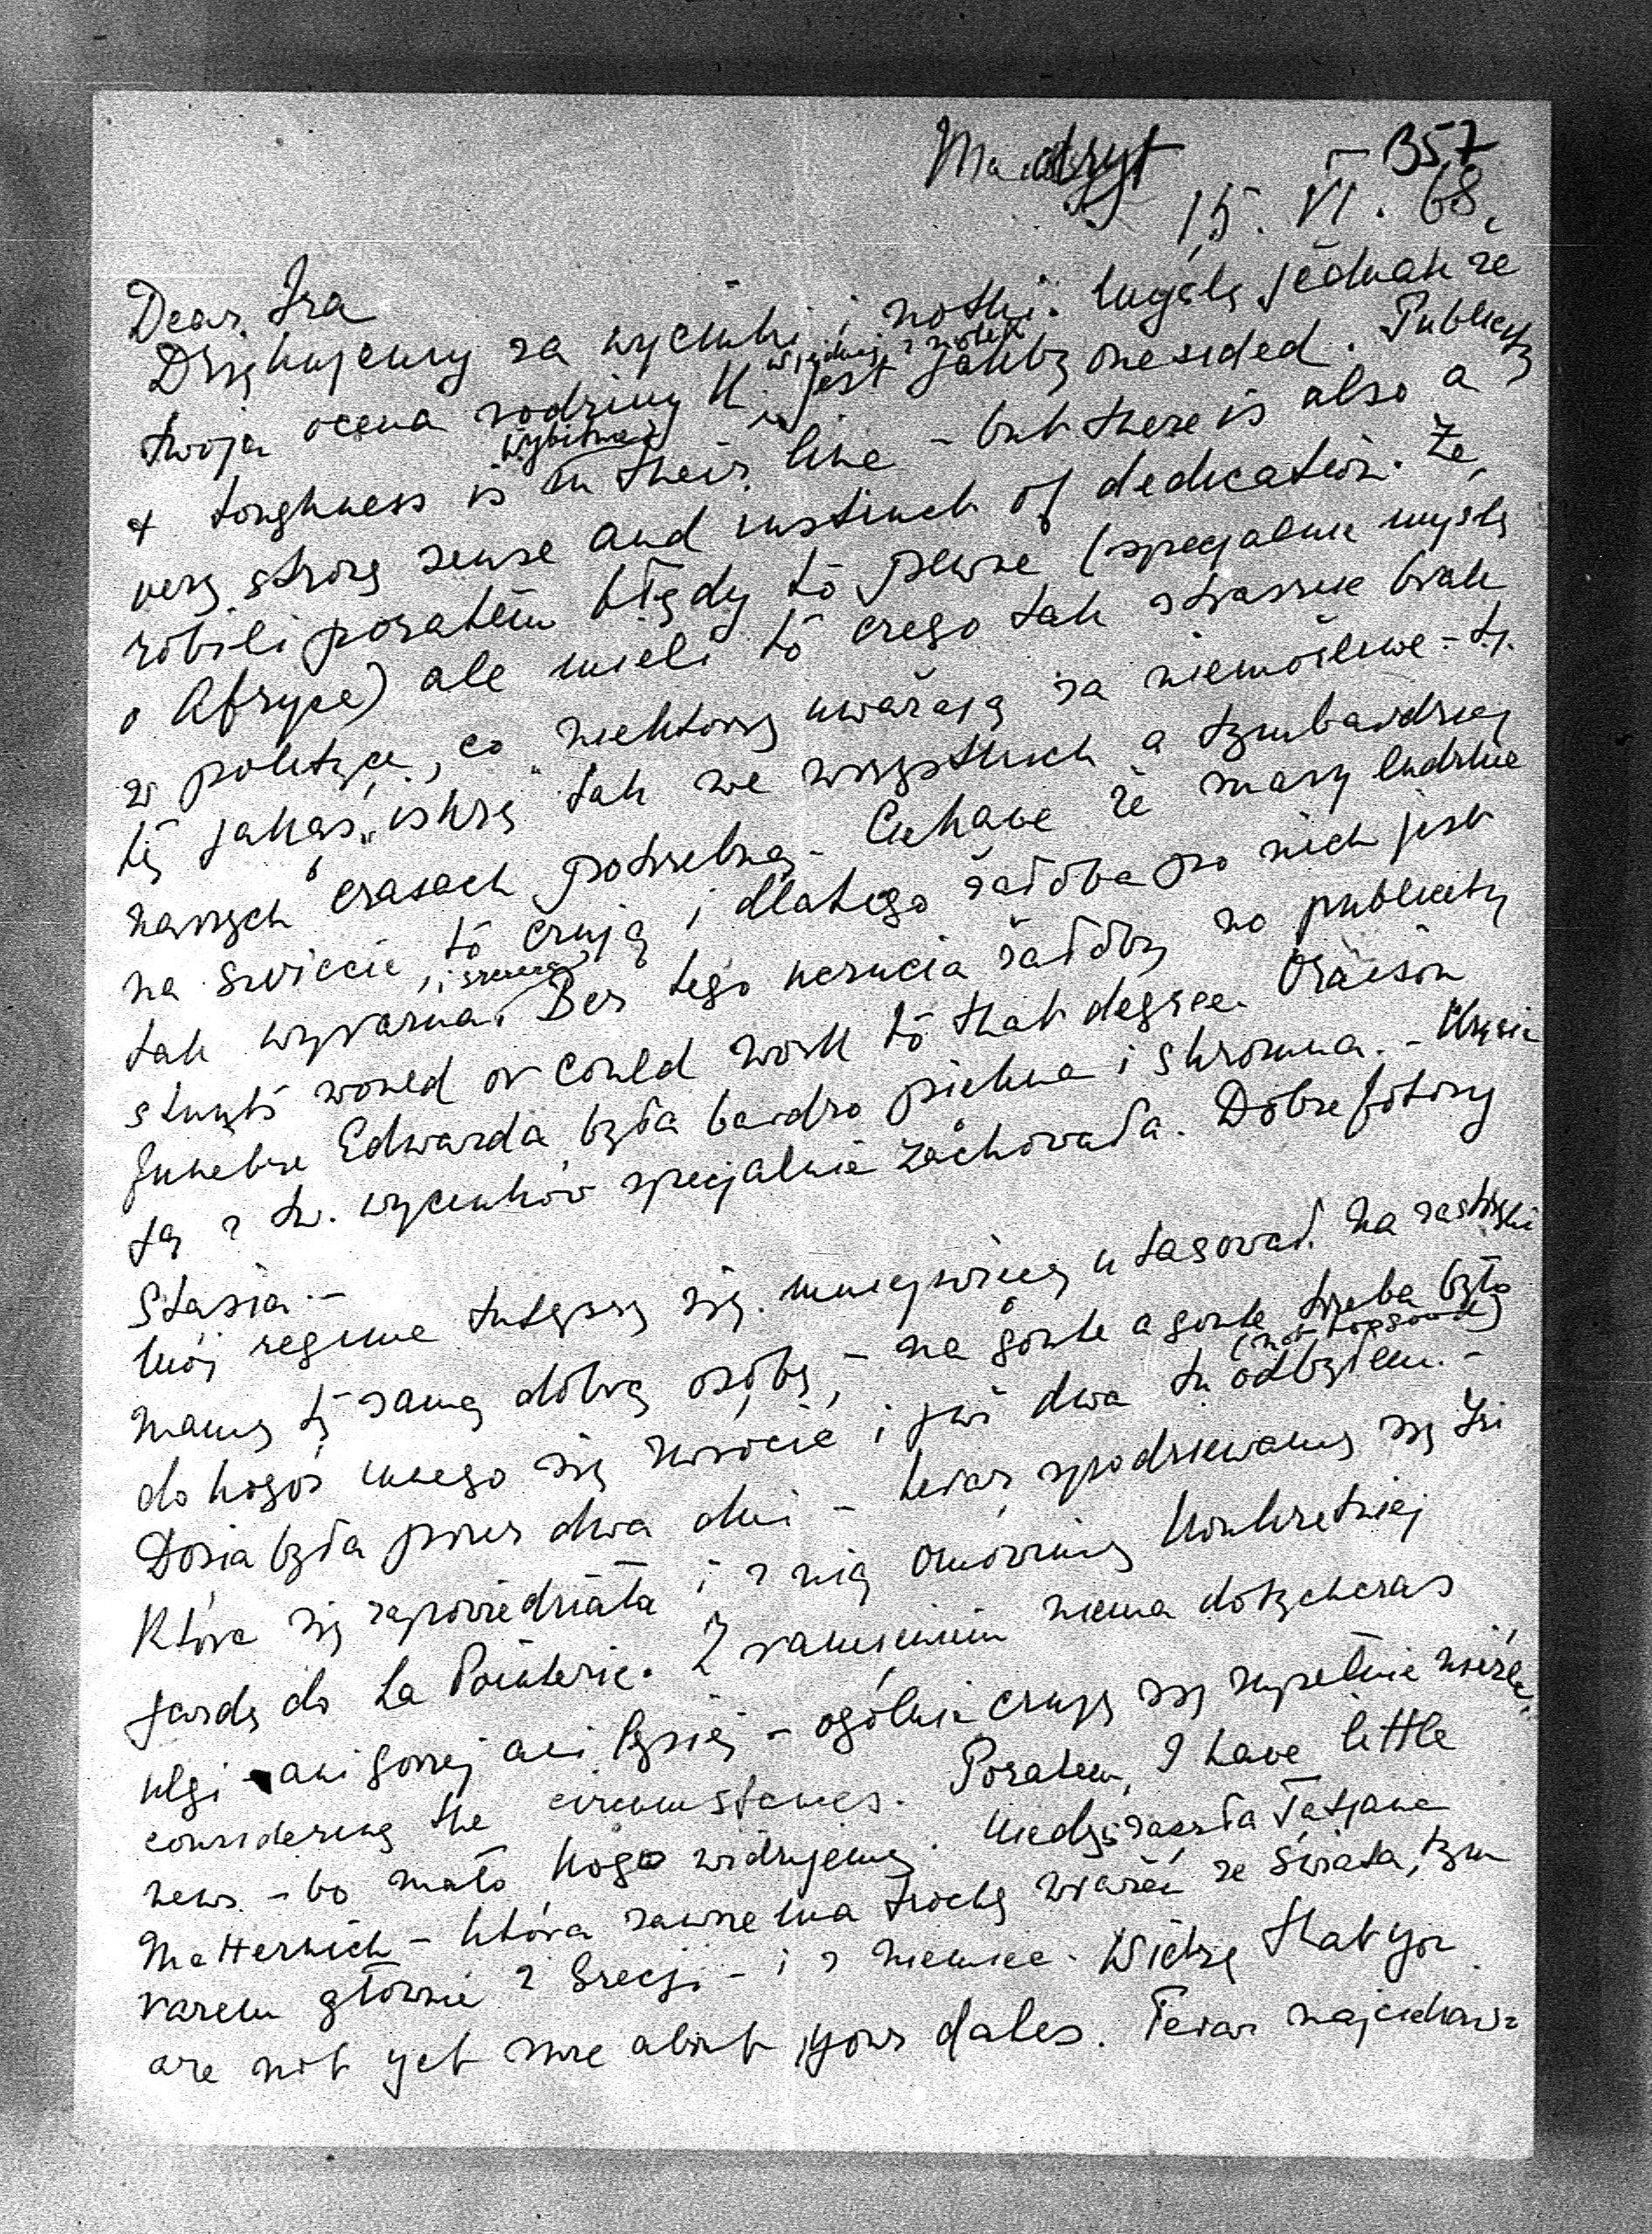 Madryt
B57
15. VI. 68.
Dear Ira
Dziękujemy za wycinki i notki. Myślę jednak że
w jednej z notek
twoja ocena rodziny K. jest jakby onesided. Publicity
wybitnie
+ toughness is in their line - but there is also a
very strong sense and instinct of dedication. Że
robili pozatem błędy to pewne (specjalnie myślę
o Afryce) ale mieli to czego tak strasznie brak
w polityce, co niektórzy uważają za niemożliwe - t.j.
tę jakąś "iskrę tak we wszystkich a tymbardziej
naszych czasach potrzebną. Ciekawe że masy ludzkie
na świecie to czują i dlatego żałoba po nich jest
i szczera
tak wyraźna. Bez tego uczucia żałoby no publicity
stunts would or could work to that degree. Oraison
funebre Edwarda była bardzo piękna i skromna. - Krysia
ją z tw. wycinków specjalnie zachowała. Dobre fotosy
Stasia. -
Mój regime tutejszy się mniejwięcej utasował. Na zastrzyki
mamy tę samą dobrą osobę, - na gorste a gorste trzeba było
do kogoś innego się zwrócić i już dwa tu odbyłem. -
Dosia była przez dwa dni - teraz spodziewamy się Izi
która się zapowiedziała i z nią omówimy konkretniej
jazdę do La Pointerie. Z ramieniem niema dotychczas
ulgi - ani gorzej ani lepiej - ogólnie czuję się zupełnie nieźle,
considering the circumstances. Pozatem, I have little
news - bo mało kogo widujemy. Kiedyś zaszła Tatjana
Metternich - która zawsze ma trochę wieści ze świata, tym
razem głównie z Grecji - i z Niemiec. Widzę that you
are not yet sure about your dates. Teraz najciekaw-